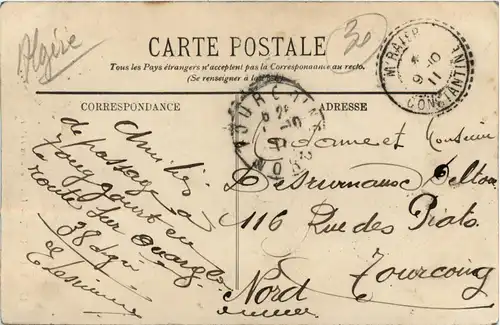 Algérie
30
CARTE POSTALE
Tous les Pays étrangers n'acceptent pas la Correspondance au recto.
(Se renseigner à la
CORRESPONDANCE
ADRESSE
M'RAIER
9-10
11
CONSTANTINE
TOURCOING
NORD
Amitiés
de passage à
Touggourt en
route sur Ouargla
38
Madame et Monsieur
116 Rue des Piats
Tourcoing
Nord